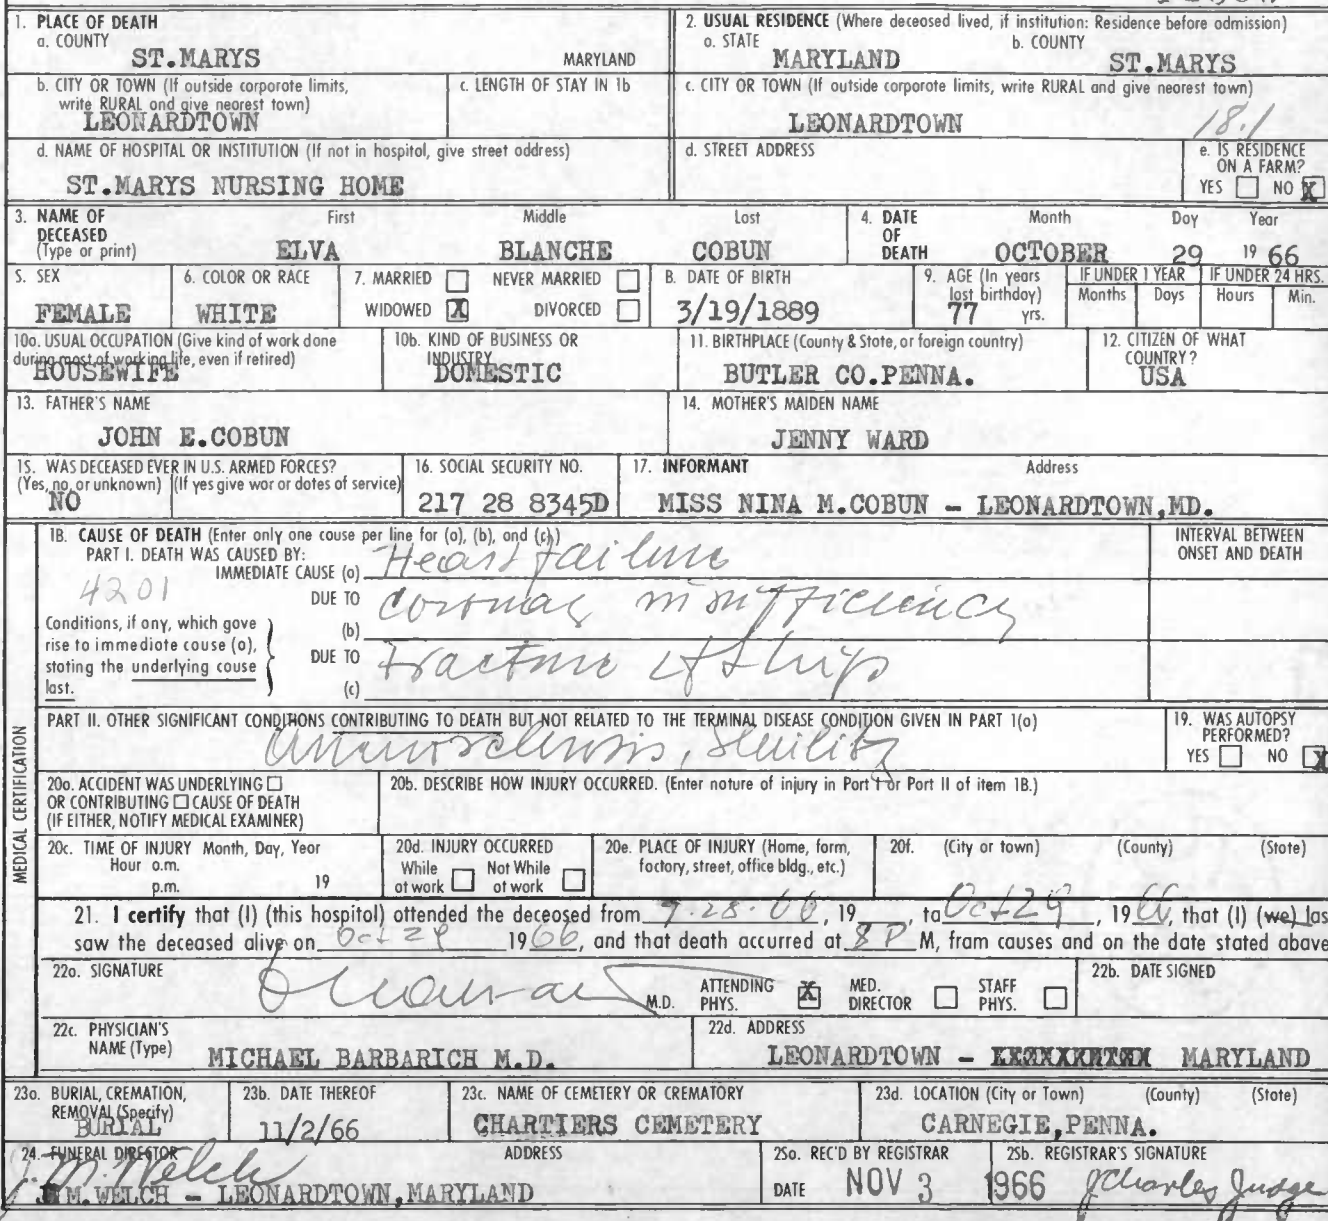 1. PLACE OF DEATH
a. COUNTY
ST.MARYS MARYLAND
2. USUAL RESIDENCE (Where deceased lived, if institution: Residence before admission)
a. STATE b. COUNTY
MARYLAND ST.MARYS
b. CITY OR TOWN (If outside corporate limits,
write RURAL and give nearest town)
LEONARDTOWN
c. LENGTH OF STAY IN 1b
c. CITY OR TOWN (If outside corporate limits, write RURAL and give nearest town)
LEONARDTOWN
18.1
d. NAME OF HOSPITAL OR INSTITUTION (If not in hospital, give street address)
ST.MARYS NURSING HOME
d. STREET ADDRESS
e. IS RESIDENCE
ON A FARM?
YES NO X
3. NAME OF
DECEASED
(Type or print)
First Middle Last
ELVA BLANCHE COBUN
4. DATE
OF
DEATH
Month Day Year
OCTOBER 29 19 66
5. SEX
FEMALE
6. COLOR OR RACE
WHITE
7. MARRIED NEVER MARRIED
WIDOWED X DIVORCED
8. DATE OF BIRTH
3/19/1889
9. AGE (In years
last birthday)
77 yrs.
IF UNDER 1 YEAR IF UNDER 24 HRS.
Months Days Hours Min.
10a. USUAL OCCUPATION (Give kind of work done
during most of working life, even if retired)
HOUSEWIFE
10b. KIND OF BUSINESS OR
INDUSTRY
DOMESTIC
11. BIRTHPLACE (County & State, or foreign country)
BUTLER CO.PENNA.
12. CITIZEN OF WHAT
COUNTRY?
USA
13. FATHER'S NAME
JOHN E.COBUN
14. MOTHER'S MAIDEN NAME
JENNY WARD
15. WAS DECEASED EVER IN U.S. ARMED FORCES?
(Yes, no, or unknown) (If yes give war or dates of service)
NO
16. SOCIAL SECURITY NO.
217 28 8345D
17. INFORMANT Address
MISS NINA M.COBUN - LEONARDTOWN,MD.
MEDICAL CERTIFICATION
18. CAUSE OF DEATH (Enter only one cause per line for (a), (b), and (c).)
PART I. DEATH WAS CAUSED BY:
IMMEDIATE CAUSE (a) Heart failure
4201
DUE TO
(b) Coronary insufficiency
Conditions, if any, which gave
rise to immediate cause (a),
stating the underlying cause
last.
DUE TO
(c) Fracture of hip
INTERVAL BETWEEN
ONSET AND DEATH
PART II. OTHER SIGNIFICANT CONDITIONS CONTRIBUTING TO DEATH BUT NOT RELATED TO THE TERMINAL DISEASE CONDITION GIVEN IN PART 1(a)
Senility
19. WAS AUTOPSY
PERFORMED?
YES NO X
20a. ACCIDENT WAS UNDERLYING
OR CONTRIBUTING CAUSE OF DEATH
(IF EITHER, NOTIFY MEDICAL EXAMINER)
20b. DESCRIBE HOW INJURY OCCURRED. (Enter nature of injury in Part I or Part II of item 18.)
20c. TIME OF INJURY Month, Day, Year
Hour a.m.
p.m. 19
20d. INJURY OCCURRED
While Not While
at work at work
20e. PLACE OF INJURY (Home, farm,
factory, street, office bldg., etc.)
20f. (City or town) (County) (State)
21. I certify that (I) (this hospital) attended the deceased from 9-28-66, 19 , to Oct 29, 1966, that (I) (we) las
saw the deceased alive on Oct 29 1966, and that death occurred at 8 P M, from causes and on the date stated above
22a. SIGNATURE
M.D.
ATTENDING
PHYS. X
MED.
DIRECTOR
STAFF
PHYS.
22b. DATE SIGNED
22c. PHYSICIAN'S
NAME (Type)
MICHAEL BARBARICH M.D.
22d. ADDRESS
LEONARDTOWN - MARYLAND
23a. BURIAL, CREMATION,
REMOVAL (Specify)
BURIAL
23b. DATE THEREOF
11/2/66
23c. NAME OF CEMETERY OR CREMATORY
CHARTIERS CEMETERY
23d. LOCATION (City or Town) (County) (State)
CARNEGIE,PENNA.
24. FUNERAL DIRECTOR ADDRESS
M. Welch
M.WELCH - LEONARDTOWN,MARYLAND
25a. REC'D BY REGISTRAR
DATE NOV 3 1966
25b. REGISTRAR'S SIGNATURE
J Charles Judge